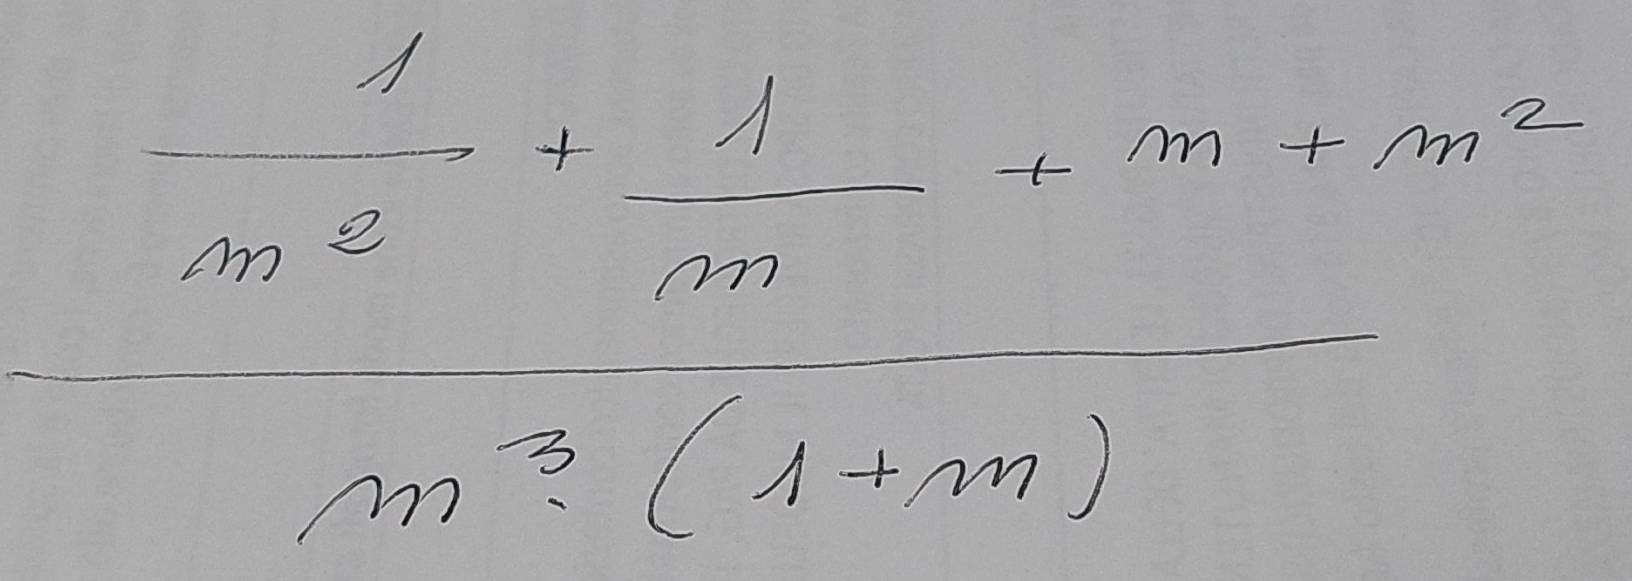 \frac{\frac{1}{m^2} + \frac{1}{m} + m + m^2}{m^3 \cdot (1+m)}